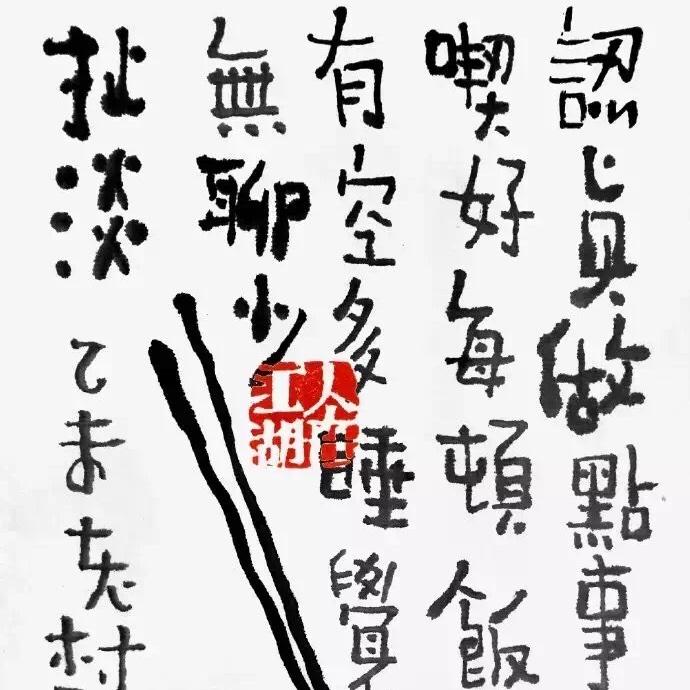 認眞做點事
喫好每頓飯
有空多睡覺
無聊少
扯淡 乙未老
人在江湖